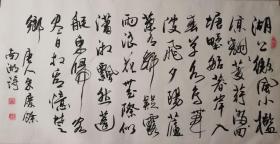 湖上微風小檻
凉翻翻菱荇滿回
塘野船着岸入
春草水鸟带
波飛夕陽蘆
葉有聲疑露
雨浪花無際似
瀟湘飘然篷
艇東歸客
尽日相看憶楚
鄉
唐人朱慶餘
南湖詩